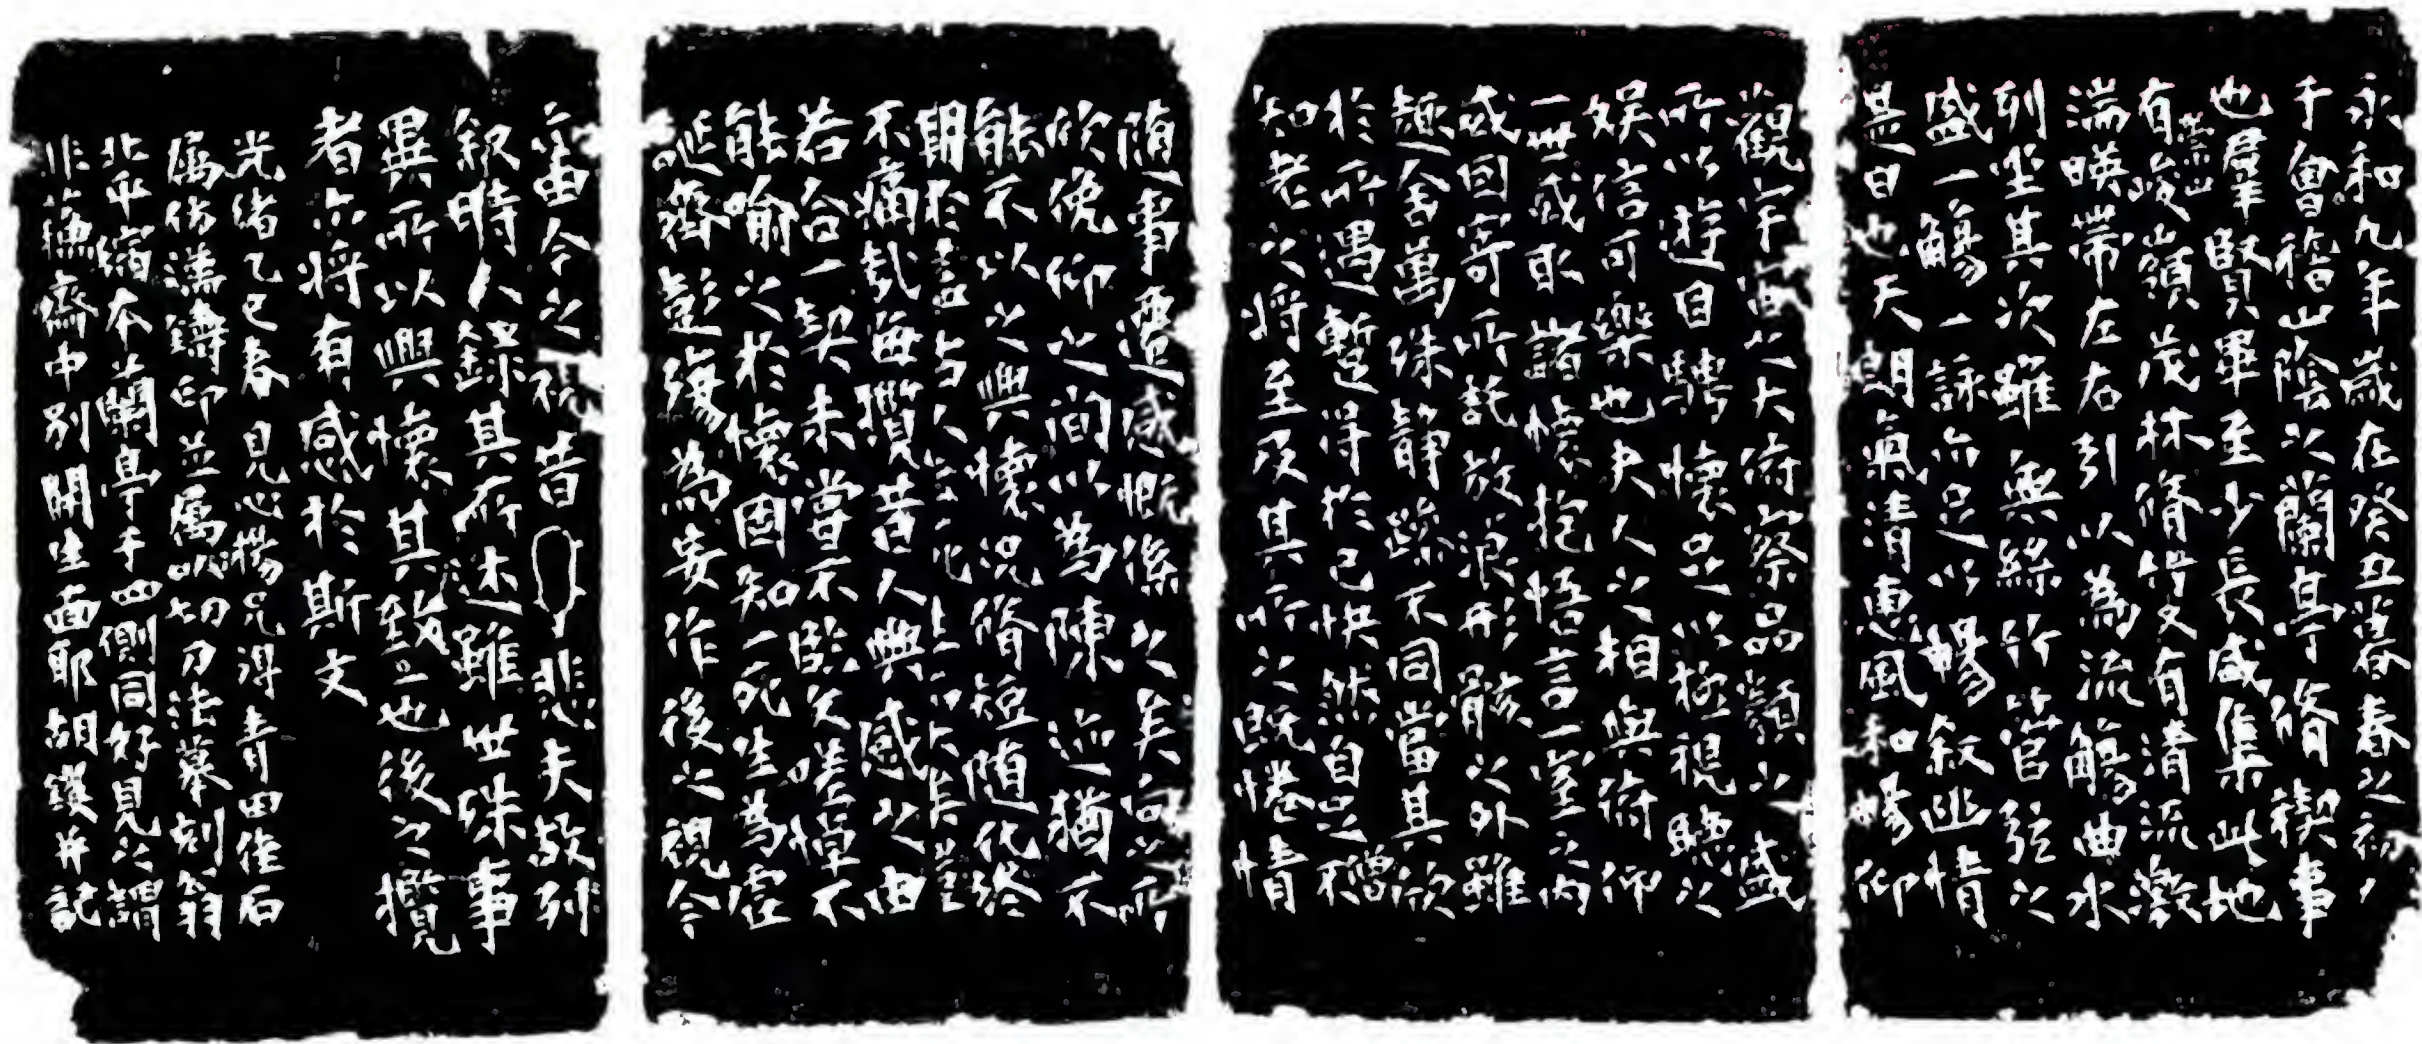 永和九年歲在癸丑暮春之初
于會稽山陰之蘭亭脩禊事
也羣賢畢至少長咸集此地
有崇山峻領茂林脩竹又有清流激
湍暎帶左右引以為流觴曲水
列坐其次雖無絲竹管弦之
盛一觴一詠亦足以暢敘幽情
是日也天朗氣清惠風和暢仰
觀宇宙之大俯察品類之盛
所以遊目騁懷足以極視聽之
娛信可樂也夫人之相與俯仰
一世或取諸懷抱悟言一室之內
或因寄所託放浪形骸之外雖
趣舍萬殊靜躁不同當其欣
於所遇暫得於己怏然自足不
知老之將至及其所之既惓情
隨事遷感慨係之矣向之所
欣俛仰之間以為陳迹猶不
能不以之興懷況脩短隨化終
期於盡古人云死生亦大矣豈
不痛哉每攬昔人興感之由
若合一契未嘗不臨文嗟悼不
能喻之於懷固知一死生為虛
誕齊彭殤為妄作後之視今
亦由今之視昔悲夫故列
敘時人錄其所述雖世殊事
異所以興懷其致一也後之攬
者亦將有感於斯文
光緒乙巳春見心楊兄得青田佳石
屬仿漢鑄印並屬以切刀法摹刻翁
北平縮本蘭亭于四側同好見之謂
非蘇齋中別開生面耶胡钁并記